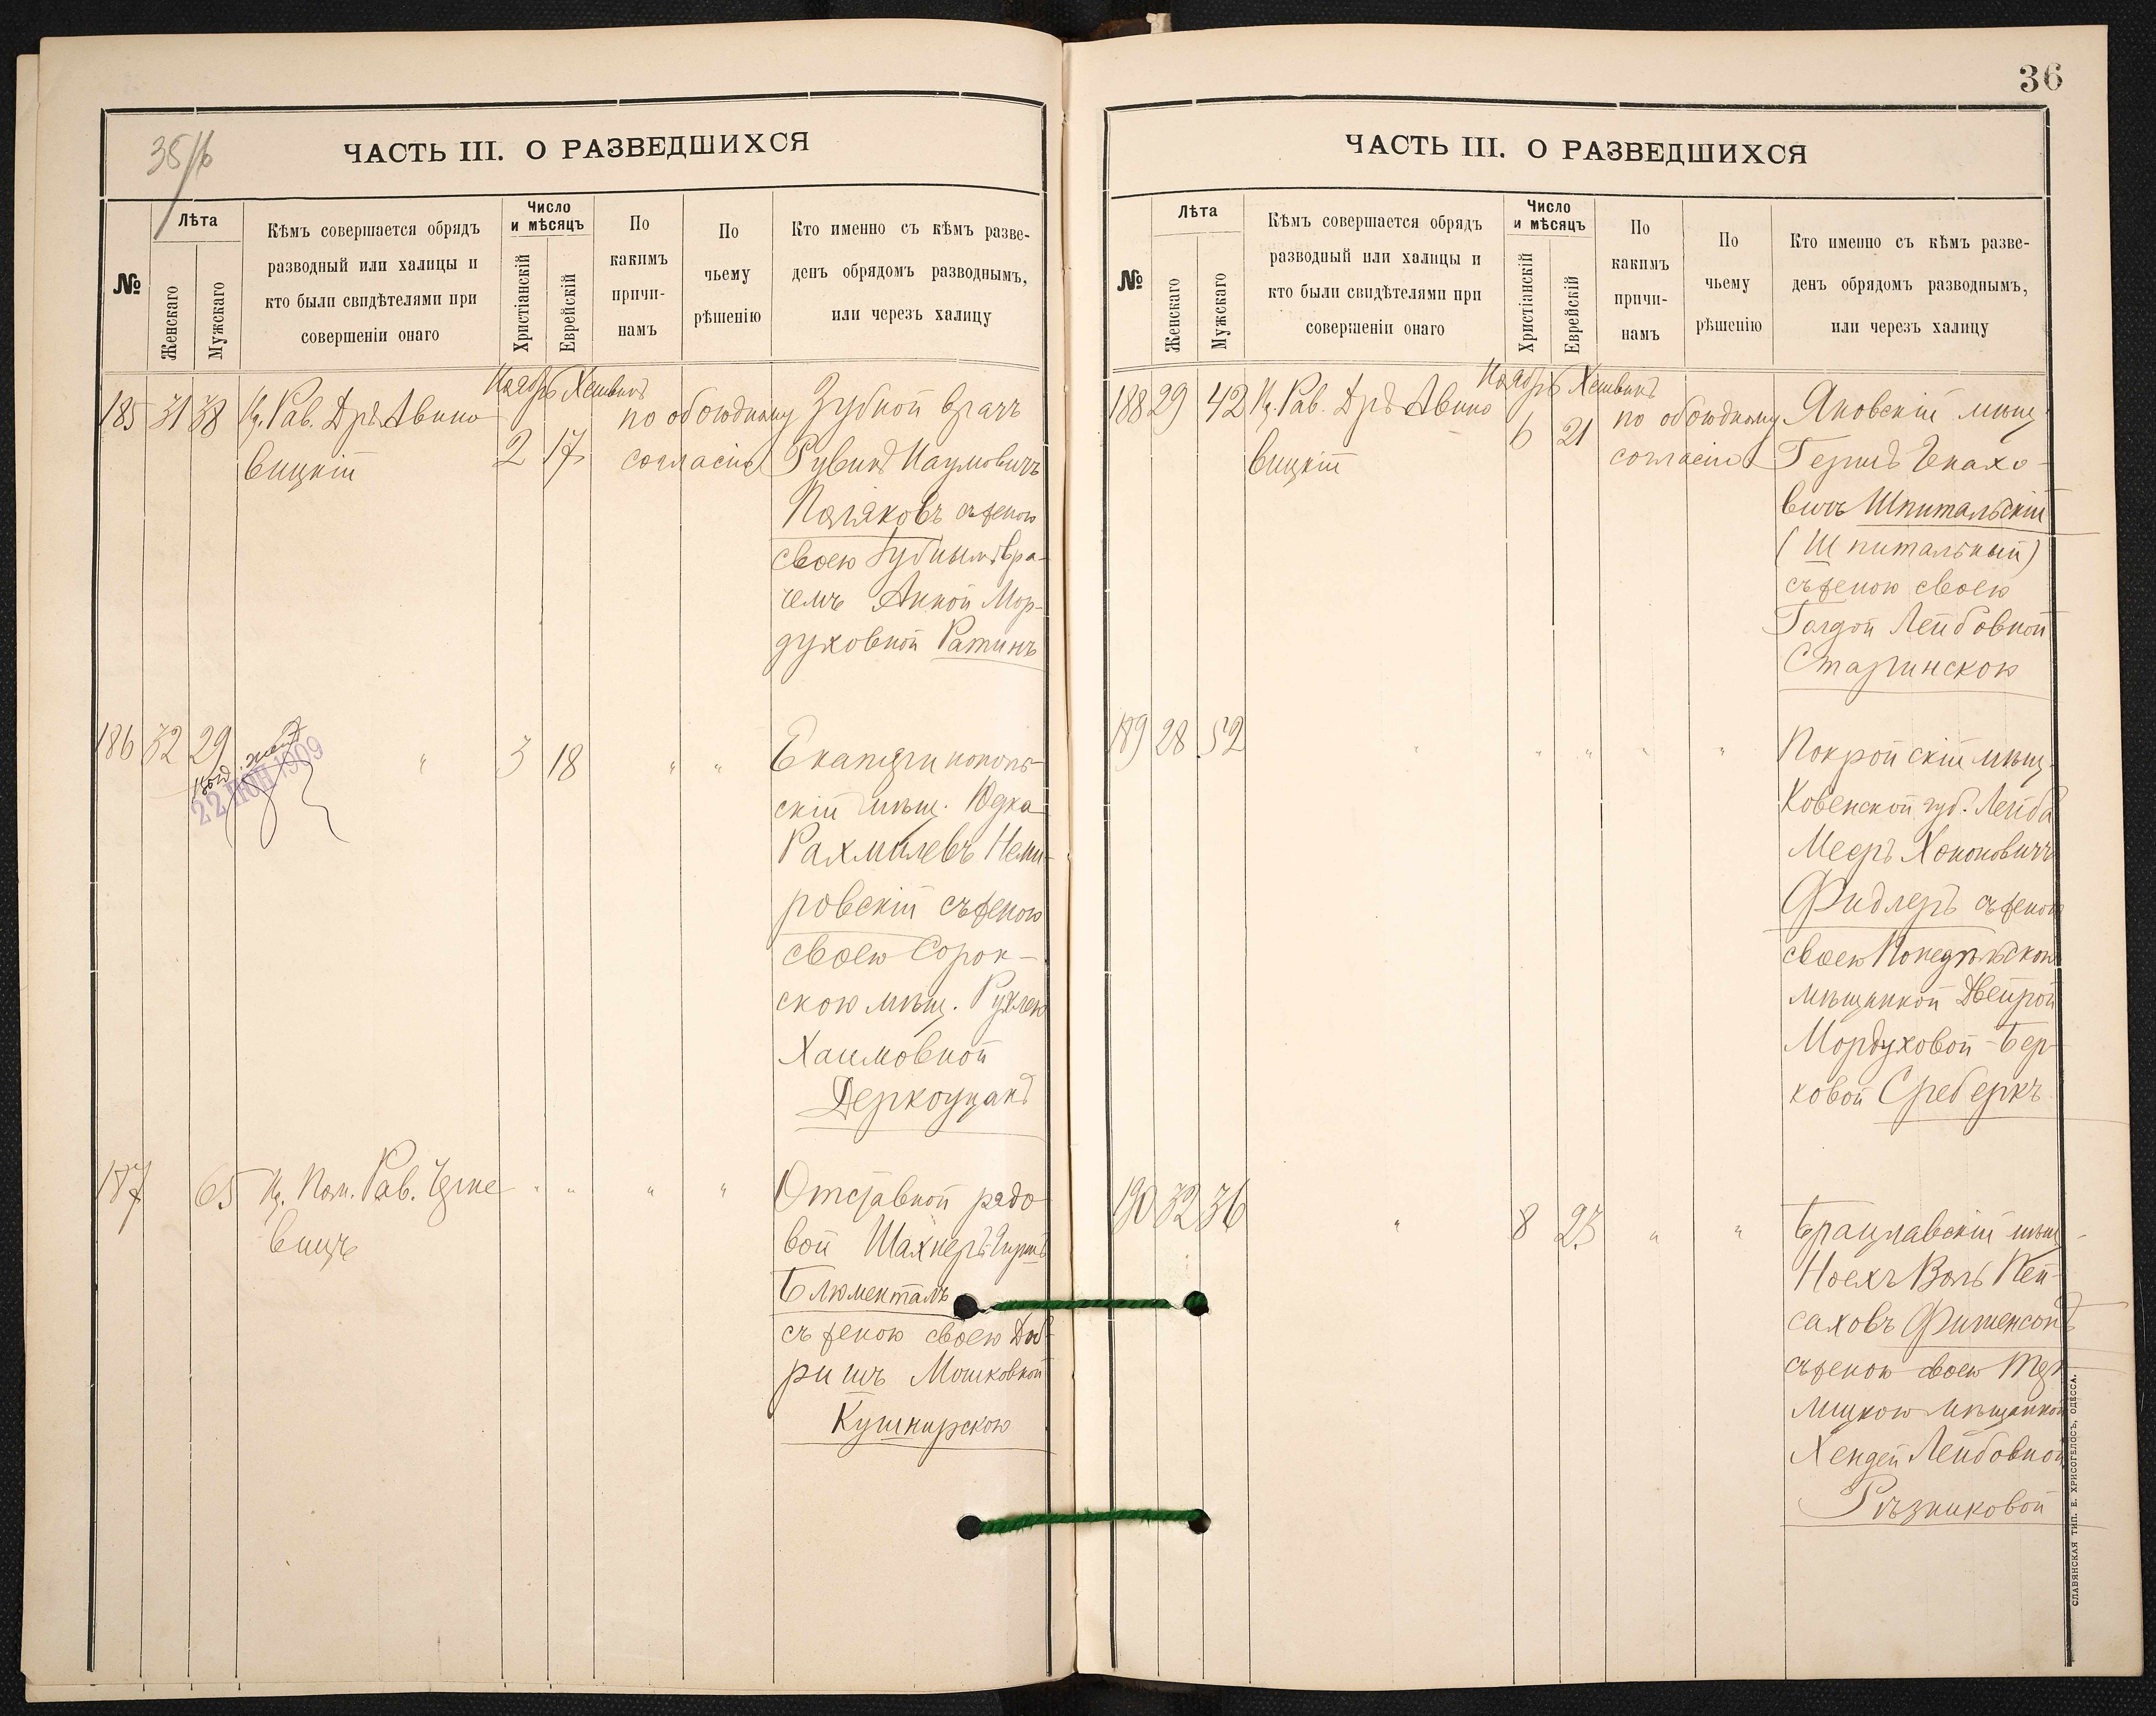 35/б
ЧАСТЬ III. О РАЗВЕДШИХСЯ
№
Лѣта
Женскаго
Мужскаго
Кѣмъ совершается обрядъ
разводный или халицы и
кто были свидѣтелями при
совершеніи онаго
Число
и мѣсяцъ
Христіанскій
Еврейскій
По
какимъ
причи-
намъ
По
чьему
рѣшенію
Кто именно съ кѣмъ разве-
денъ обрядомъ разводнымъ,
или черезъ халицу
Ноябрь Хешвинъ
185 31 38 Ц. Рав. Дръ Авино
вицкій
2 17
по обоюдному
согласію
Зубной врачъ
Рувинъ Наумовичъ
Поляковъ съ женою
своею Зубнымъ вра-
чемъ Анной Мор-
духовной Ратинъ
186 32 29 " 3 18 " "
22 ІЮН 1909
Екатеринополь-
скій мѣщ. Юдка
Рахмилевъ Неми-
ровскій съ женою
своею Сорок-
скою мѣщ. Рухлею
Хаимовной
Деркоуцанъ
187 65 Ц. Пом. Рав. Черне
вицъ
" " " "
Отставной рядо
вой Шахнеръ-Гиршъ
Блюменталь
съ женою своею Доб-
ришъ Мошковной
Кушнирскою
36
ЧАСТЬ III. О РАЗВЕДШИХСЯ
№
Лѣта
Женскаго
Мужскаго
Кѣмъ совершается обрядъ
разводный или халицы и
кто были свидѣтелями при
совершеніи онаго
Число
и мѣсяцъ
Христіанскій
Еврейскій
По
какимъ
причи-
намъ
По
чьему
рѣшенію
Кто именно съ кѣмъ разве-
денъ обрядомъ разводнымъ,
или черезъ халицу
Ноябрь Хешвинъ
188 29 42 Ц. Рав. Дръ Авино
вицкій
6 21
по обоюдному
согласію
Яновскій мѣщ.
Гершъ Генахо-
вичъ Шпитальскій
(Шпитальный)
съ женою своею
Голдой Лейбовной
Старинскою
189 28 52 " " " " "
Покройскій мѣщ.
Ковенской губ. Лейба
Мееръ Хононовичъ
Фидлеръ съ женою
своею Понедѣльскою
мѣщанкой Двейрой
Мордуховой-Бер-
ковой Сребергъ
190 32 36 " 8 23 " "
Брацлавскій мѣщ.
Ноехъ Воль Пей-
саховъ Фишенсонъ
съ женою своею Теп-
лицкою мѣщанкой
Хендей Лейбовной
Рѣзниковой
СЛАВЯНСКАЯ ТИП. Е. ХРИСОГЕЛОСЪ, ОДЕССА.